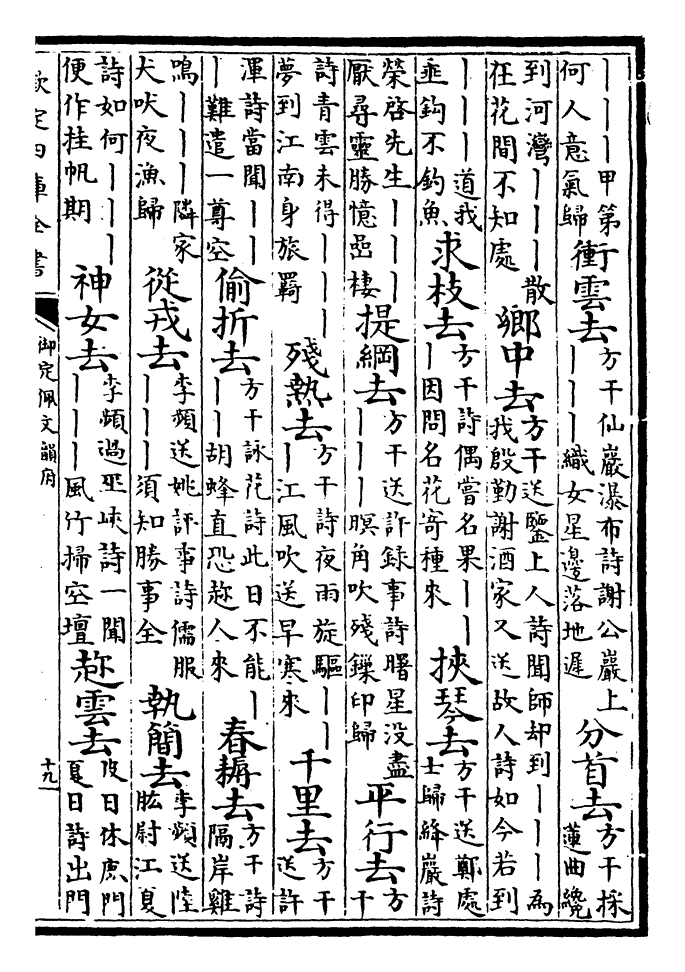 ｜｜｜甲第
何人意氣歸
衝雲去
方干仙巖瀑布詩謝公巖上
｜｜｜織女星邊落地遲
分首去
方干採
蓮曲纔
到河灣｜｜｜散
在花間不知處
鄉中去
方干送鑒上人詩聞師却到｜｜｜為
我殷勤謝酒家又送故人詩如今若到
｜｜｜道我
垂鈎不釣魚
求枝去
方干詩偶嘗名果｜｜
｜因問名花寄種來
挾琴去
方干送鄭處
士歸絳巖詩
榮啓先生｜｜｜
厭尋靈勝憶嵒棲
提綱去
方干送許錄事詩曙星没盡
｜｜｜暝角吹殘鏁印歸
平行去
方
干
詩青雲未得｜｜｜
夢到江南身旅羇
殘熱去
方干詩夜雨旋驅｜｜
｜江風吹送早寒來
千里去
方干
送許
渾詩當聞｜｜
｜難遣一尊空
偷折去
方干詠花詩此日不能｜
｜｜胡蜂直恐趂人來
春耨去
方干詩
隔岸雞
鳴｜｜｜隣家
犬吠夜漁歸
從戎去
李頻送姚評事詩儒服
｜｜｜須知勝事全
執簡去
李頻送陸
肱尉江夏
詩如何｜｜｜
便作挂帆期
神女去
李頻過巫峽詩一聞
｜｜｜風竹掃空壇
趂雲去
皮日休鹿門
夏日詩出門
欽定四庫全書
御定佩文韻府
十九